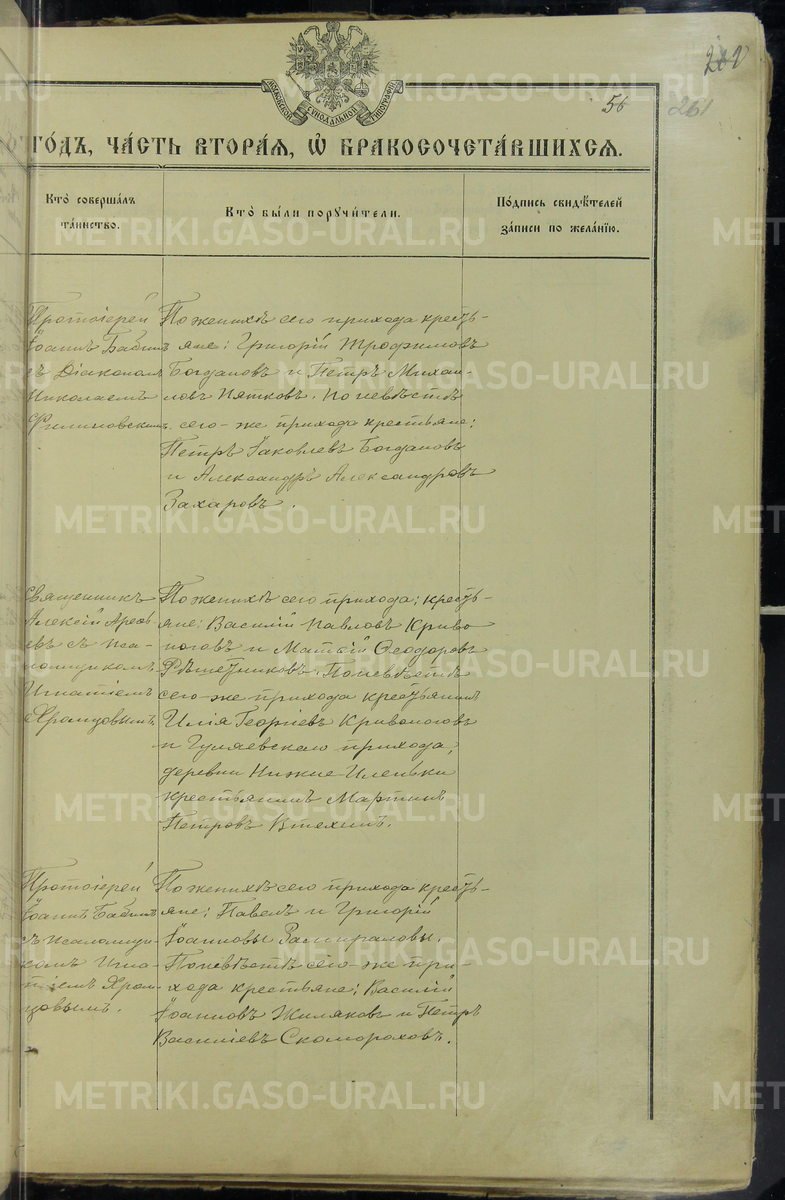 МОСКОВСКОЙ СѴНОДАЛЬНОЙ ТИПОГРАФІИ
56
261
ГО́ДЪ, ЧА́СТЬ ВТОРА́Я, Ѡ҆ БРАКОСОЧЕТА́ВШИХСЯ.
Кто̀ соверша́лъ
та́инство.
Кто̀ бы́ли поручи́тели.
По́дпись свидѣ́телей
за́писи по жела́нїю.
Протоіерей
Іоаннъ Бабинъ
съ Діакономъ
Николаемъ
По женихѣ сего прихода кресть-
яне: Григорій Трофимовъ
Богдановъ и Петръ Михаи-
ловъ Пятковъ. По невѣстѣ
сего-же прихода крестьяне:
Петръ Іаковлевъ Богдановъ
и Александръ Александровъ
Захаровъ.
Священникъ
Алексій
съ Пса-
ломщикомъ
Игнатіемъ
Храмцовымъ
По женихѣ сего прихода: кресть-
яне: Василій Павловъ Криво
ноговъ и Матѳій Ѳеодоровъ
Рѣшетниковъ. По невѣстѣ
сего-же прихода крестьянинъ
Илія Георгіевъ Кривоноговъ
и Гуляевскаго прихода,
деревни Нижне-Иленьки
крестьянинъ Мартинъ
Петровъ Втехинъ.
Протоіерей
Іоаннъ Бабинъ
съ псаломщи-
комъ Игна-
тіемъ Храм-
цовымъ.
По женихѣ сего прихода кресть-
яне: Павелъ и Григорій
Іоанновы Замираловы.
По невѣстѣ сего же при-
хода крестьяне: Василій
Іоанновъ Жиляковъ и Петръ
Василіевъ Скомороховъ.
METRIKI.GASO-URAL.RU